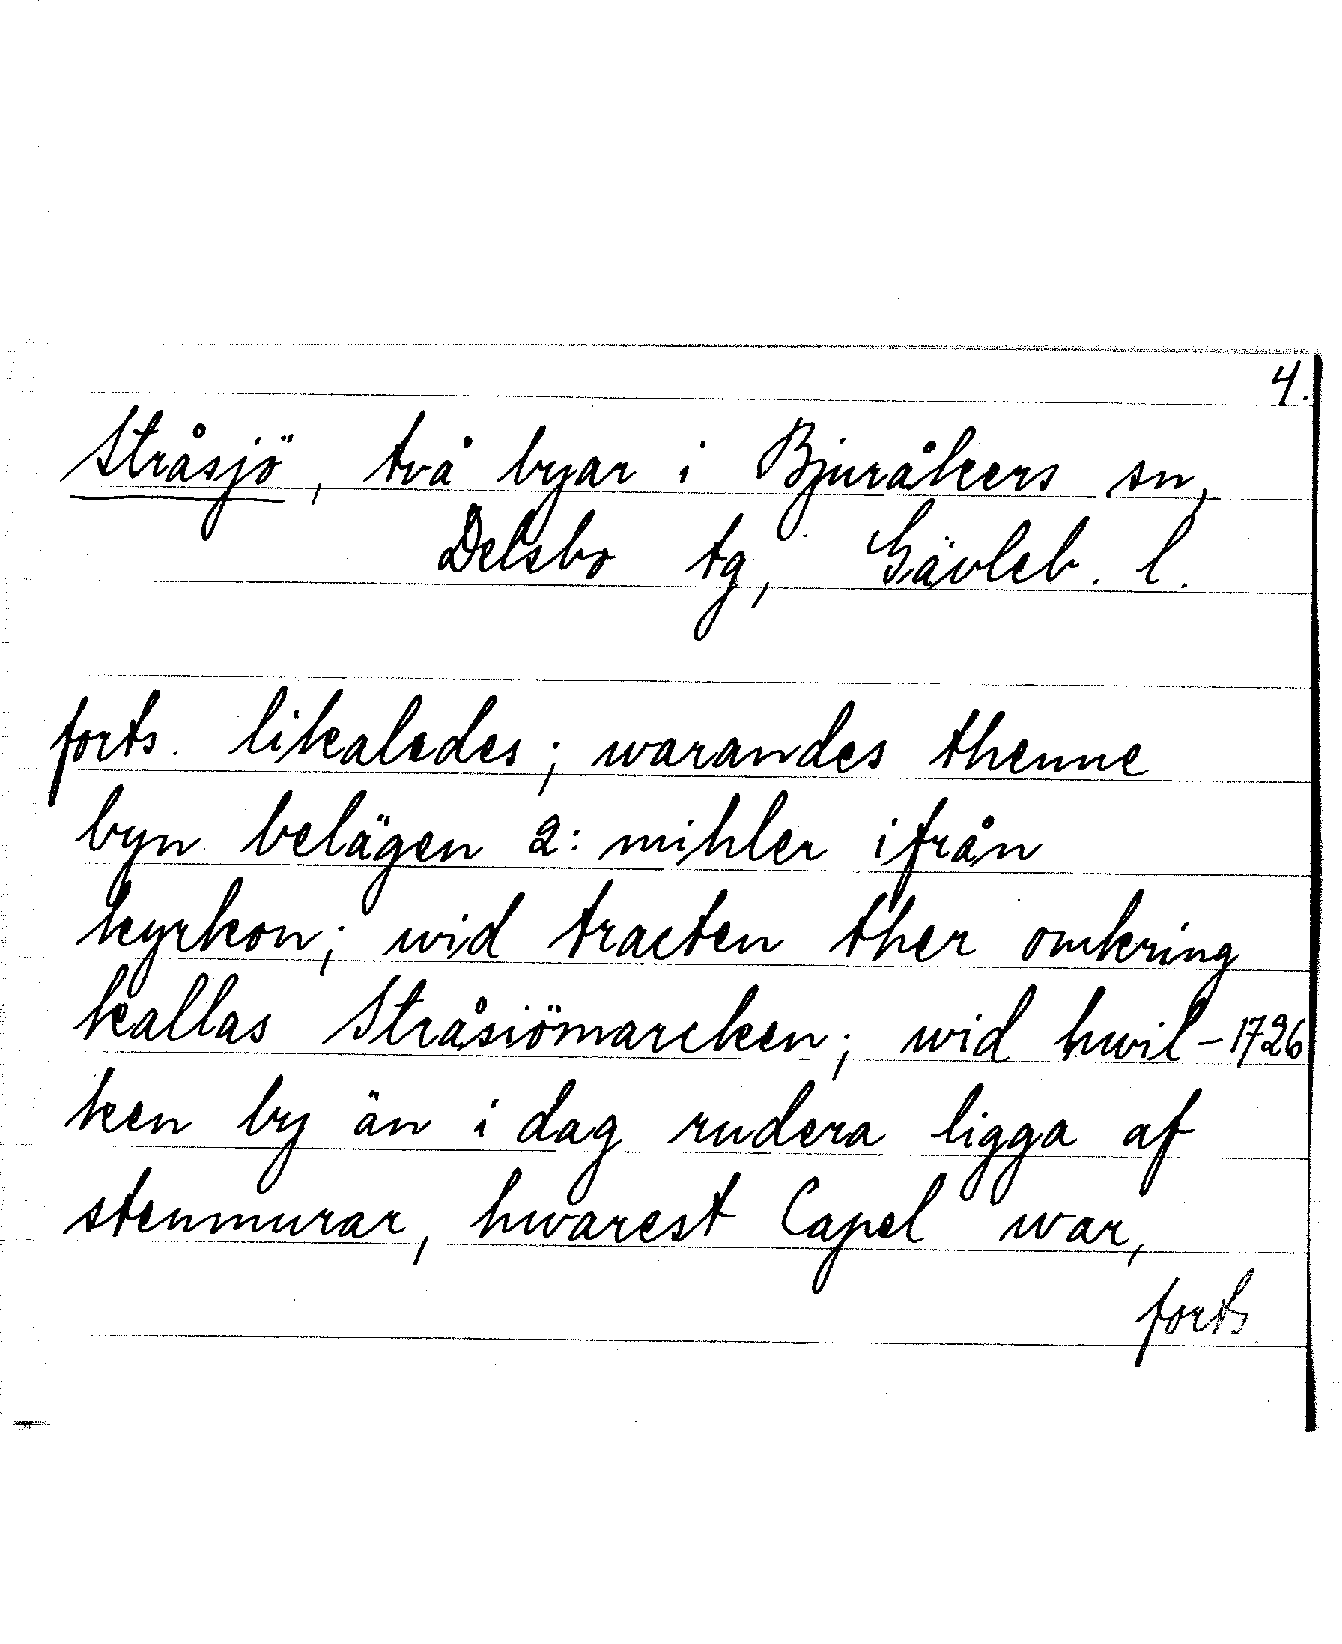 4.
Stråsjö, två byar i Bjuråkers sn,
Delsbo tg, Gävleb. l.
forts. likaledes; warandes thenne
byn belägen 2: mihler ifrån
kyrkon; wid tracten ther omkring
kallas Stråsiömarcken; wid hwil- 1726
ken by än i dag rudera ligga af
stenmurar, hwarest Capel war,
forts